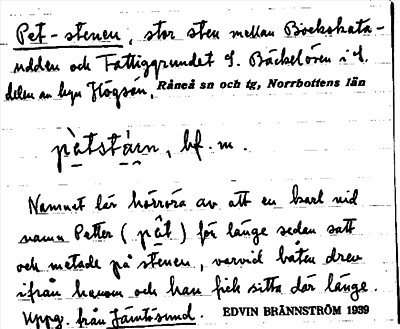 Pet-stenen, stor sten mellan Bockskata-
udden och Fattiggrundet S. Bäckelören i S.
delen av byn Högsön, Råneå sn och tg, Norrbottens län
pàtstáin, bf. m.
Namnet lär härröra av att en karl vid
namn Petter (pæ̂t) för länge sedan satt
och metade på stenen, varvid båten drev
ifrån honom och han fick sitta där länge.
Uppg. från Jämtösund. EDVIN BRÄNNSTRÖM 1939